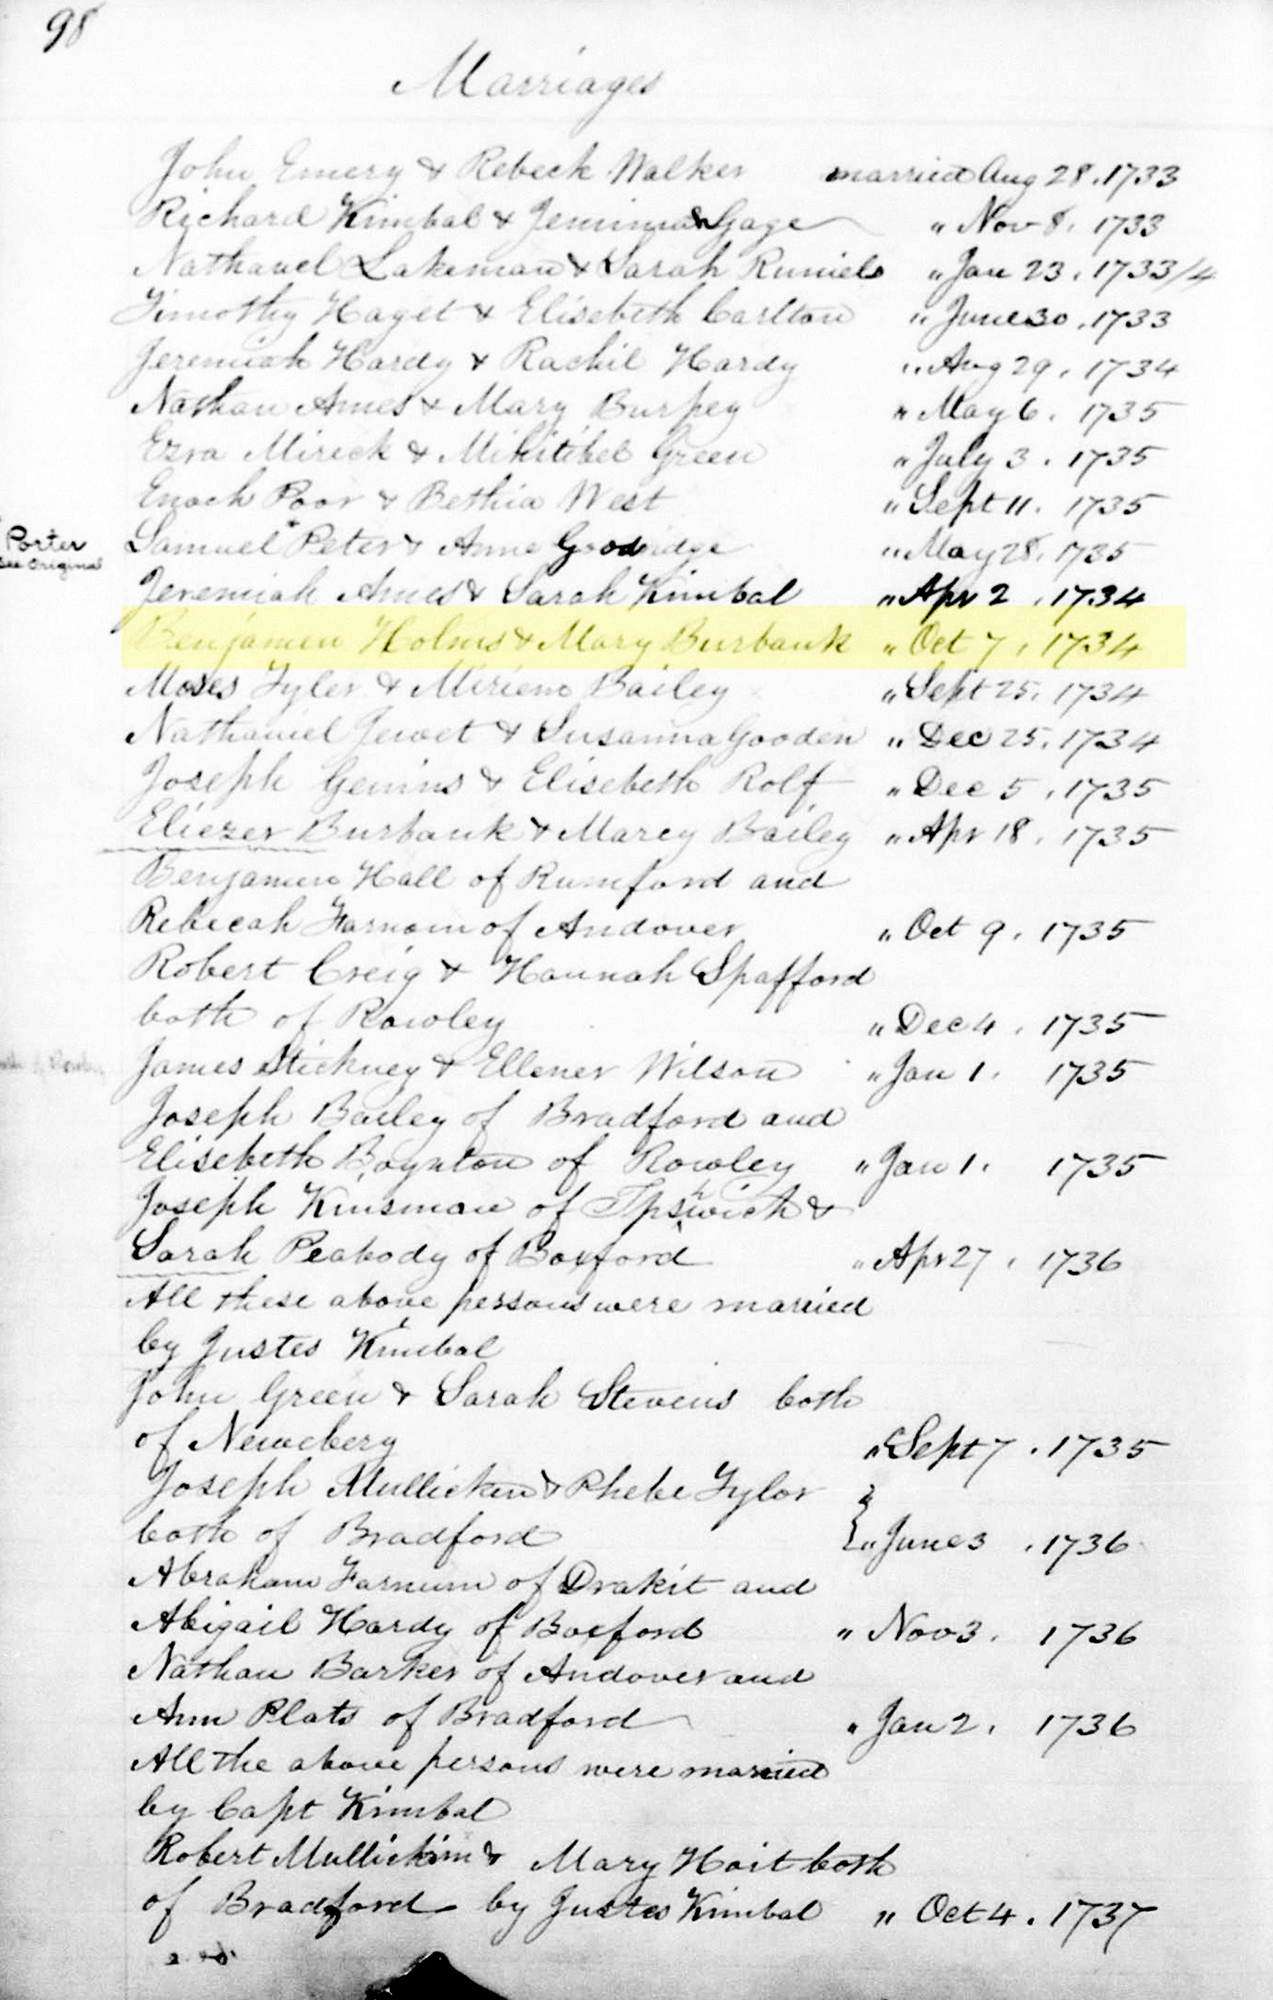 98
Marriages
John Emery & Rebeck Walker married Aug 28. 1733
Richard Kimbal & Jemima Gage " Nov 8. 1733
Nathanel Lakeman & Sarah Runiels " Jan 23. 1733/4
Timothy Haget & Elisebeth Carlton " June 30. 1733
Jeremiah Hardy & Rachil Hardy " Aug 29. 1734
Nathan Ames & Mary Burpey " May 6. 1735
Ezra Mireck & Mihitibel Green " July 3. 1735
Enoch Poor & Bethia West " Sept 11. 1735
Porter
see original
Samuel * Peter & Anne Goodridge " May 28. 1735
Jeremiah Ames & Sarah Kimbal " Apr 2. 1734
Benjamen Holms & Mary Burbank " Oct 7. 1734
Moses Tyler & Miriem Bailey " Sept 25. 1734
Nathaniel Jewet & Susanna Gooden " Dec 25. 1734
Joseph Genins & Elisebeth Rolf " Dec 5. 1735
Eliezer Burbank & Marcy Bailey " Apr 18. 1735
Benjamen Hall of Rumford and
Rebecah Farnom of Andover " Oct 9. 1735
Robert Creig & Hannah Spafford
both of Rowley " Dec 4. 1735
James Stickney & Ellener Wilson " Jan 1. 1735
Joseph Bailey of Bradford and
Elisebeth Boynton of Rowley " Jan 1. 1735
Joseph Kinsman of Ipswich &
Sarah Peabody of Boxford " Apr 27. 1736
All these above persons were married
by Justes Kimbal
John Green & Sarah Stevens both
of Neweberg " Sept 7. 1735
Joseph Mullicken & Phebe Tylor
both of Bradford " June 3. 1736
Abraham Farnum of Drakit and
Abigail Hardy of Boxford " Nov 3. 1736
Nathan Barker of Andover and
Ann Plats of Bradford " Jan 2. 1736
All the above persons were married
by Capt Kimbal
Robert Mullickin & Mary Hait both
of Bradford by Justes Kimbal " Oct 4. 1737